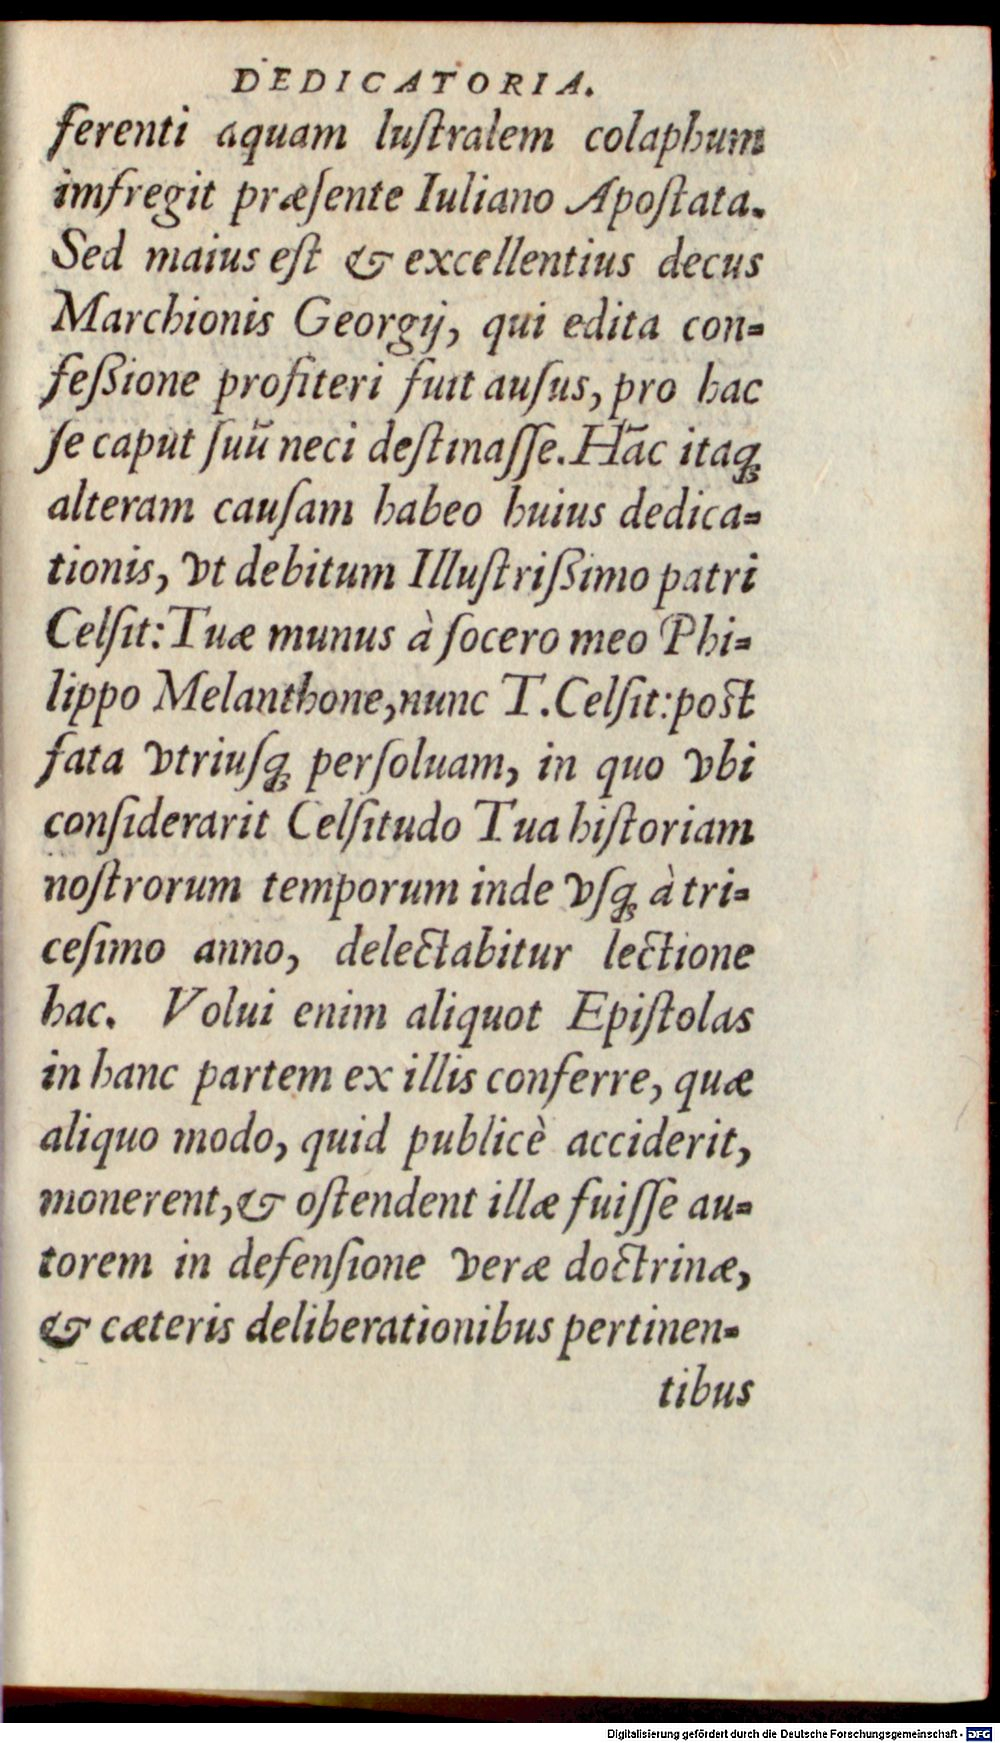 DEDICATORIA.
ferenti aquam luſtralem colaphum
imfregit præſente Iuliano Apoſtata.
Sed maius eſt & excellentius decus
Marchionis Georgij, qui edita con-
feßione profiteri fuit auſus, pro hac
ſe caput ſuū neci deſtinaſſe. Hāc itaq́ꝫ
alteram cauſam habeo huius dedica-
tionis, vt debitum Illuſtrißimo patri
Celſit: Tuæ munus à ſocero meo Phi-
lippo Melanthone, nunc T. Celſit: post
fata vtriusꝗꝫ perſoluam, in quo vbi
conſiderarit Celſitudo Tua hiſtoriam
noſtrorum temporum inde vſꝗꝫ à tri-
ceſimo anno, delectabitur lectione
hac. Volui enim aliquot Epiſtolas
in hanc partem ex illis conferre, quæ
aliquo modo, quid publicè acciderit,
monerent, & oſtendent illæ fuiſſe au-
torem in defenſione veræ doctrinæ,
& cæteris deliberationibus pertinen-
tibus
Digitalisierung gefördert durch die Deutsche Forschungsgemeinschaft - DFG